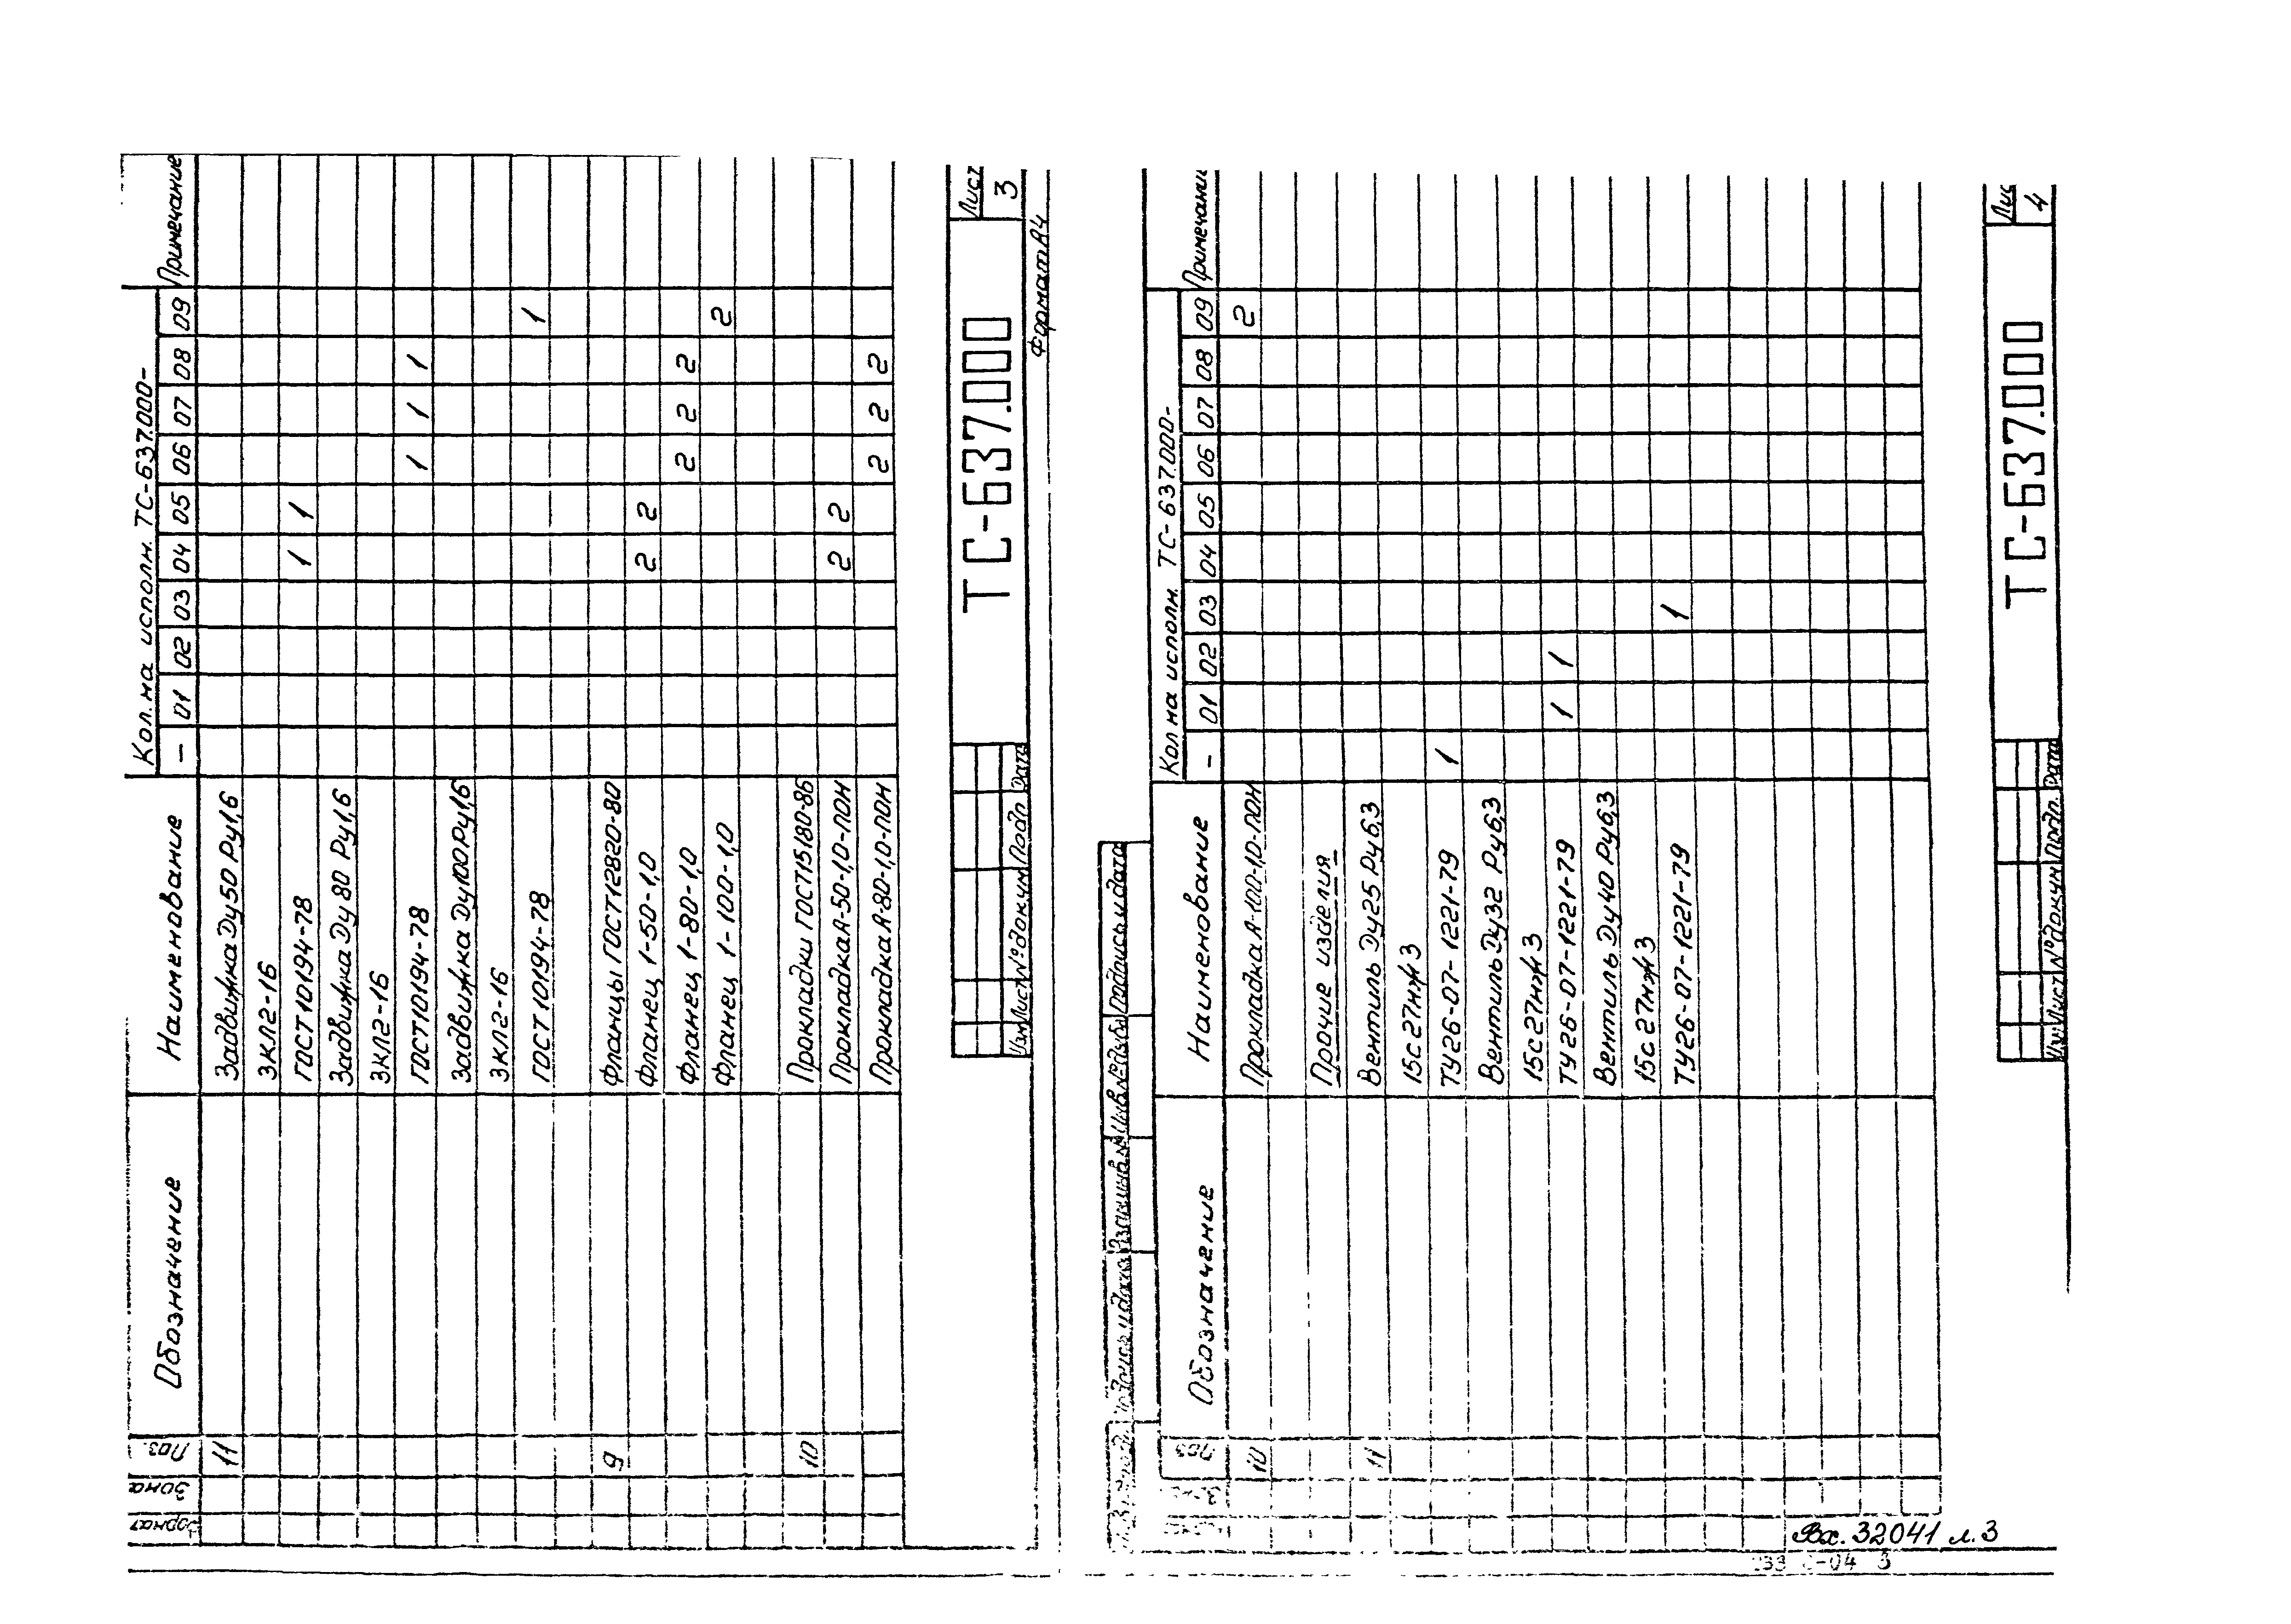 Формат
Зона
Поз.
Обозначение
Наименование
Кол. на исполн. ТС-637.000-
– 01 02 03 04 05 06 07 08 09
Примечание
11 Задвижка Ду50 Ру1,6
ЗКЛ2-16
ГОСТ10194-78 1 1
Задвижка Ду80 Ру1,6
ЗКЛ2-16
ГОСТ10194-78 1 1 1
Задвижка Ду100Ру1,6
ЗКЛ2-16
ГОСТ10194-78 1
9 Фланцы ГОСТ12820-80
Фланец 1-50-1,0 2 2
Фланец 1-80-1,0 2 2 2
Фланец 1-100-1,0 2
10 Прокладки ГОСТ15180-86
Прокладка А-50-1,0-ПОН 2 2
Прокладка А-80-1,0-ПОН 2 2 2
Изм Лист № докум Подп Дата
ТС-637.000
Лист
3
Формат А4
Подпись и дата
Взам.инв.№
Инв.№дубл
Подпись и дата
Поз
Обозначение
Наименование
Кол на исполн. ТС-637.000-
– 01 02 03 04 05 06 07 08 09
Примечани
10 Прокладка А-100-1,0-ПОН 2
Прочие изделия
11 Вентиль Ду25 Ру6,3
15с27нж3
ТУ26-07-1221-79 1
Вентиль Ду32 Ру6,3
15с27нж3
ТУ26-07-1221-79 1 1
Вентиль Ду40 Ру6,3
15с27нж3
ТУ26-07-1221-79 1
Изм Лист № докум Подп. Дата
ТС-637.000
Лис
4
Вх. 32041 л.3